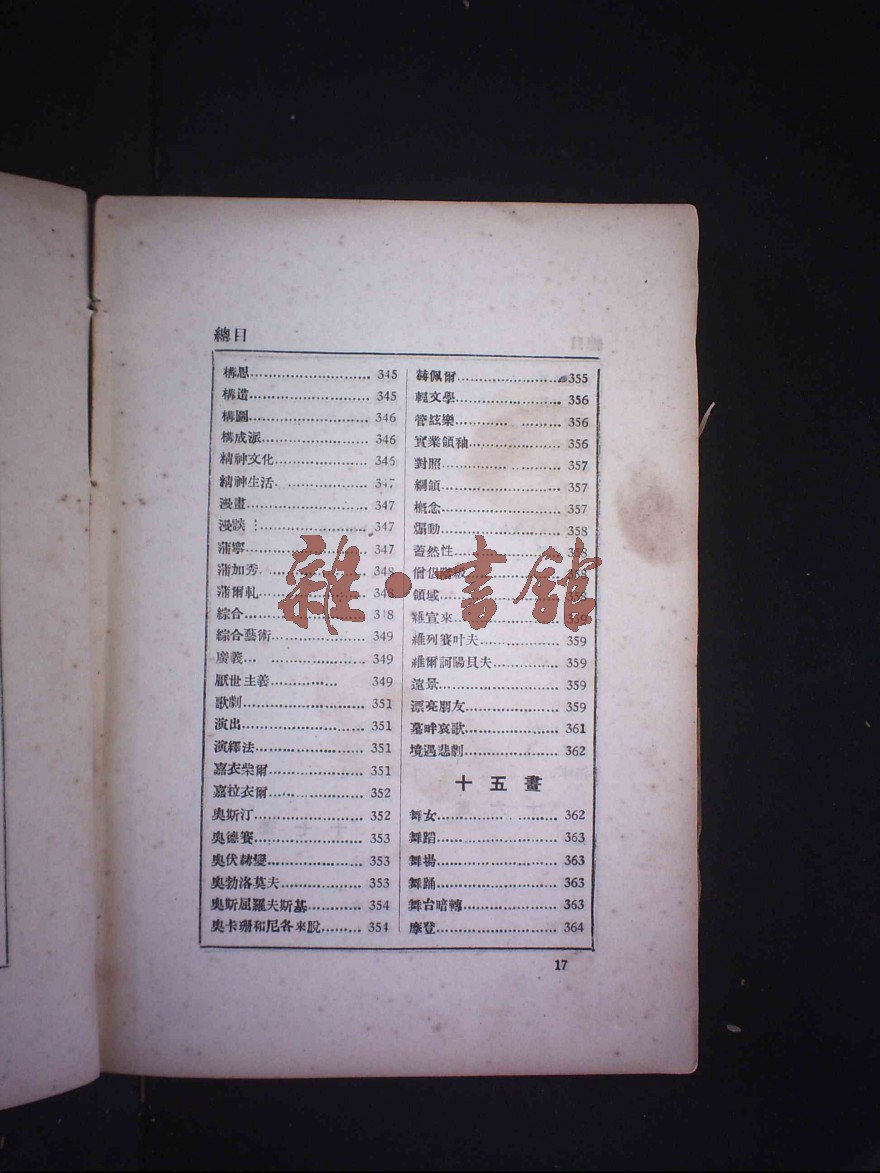 總目
構思 345
構造 345
構圖 346
構成派 346
精神文化 346
精神生活 347
漫畫 347
漫談 347
蒲寧 347
蒲加秀 348
蒲爾軋 348
綜合 348
綜合藝術 349
廣義 349
厭世主義 349
歌劇 351
演出 351
演繹法 351
嘉衣柴爾 351
嘉拉衣爾 352
奧斯汀 352
奧德賽 353
奧伏赫變 353
奧勃洛莫夫 353
奧斯屈羅夫斯基 354
奧卡珊和尼各來脫 354
赫佩爾 355
輕文學 356
管絃樂 356
實業領袖 356
對照 357
綱領 357
概念 357
煽動 358
蓋然性 358
僧侶階級 358
領域 358
維宣來 359
維列賽叶夫 359
維爾訶陽貝夫 359
遠景 359
漂亮朋友 359
墓畔哀歌 361
境遇悲劇 362
十五畫
舞女 362
舞蹈 363
舞場 363
舞踊 363
舞台暗轉 363
摩登 364
17
雜·書館